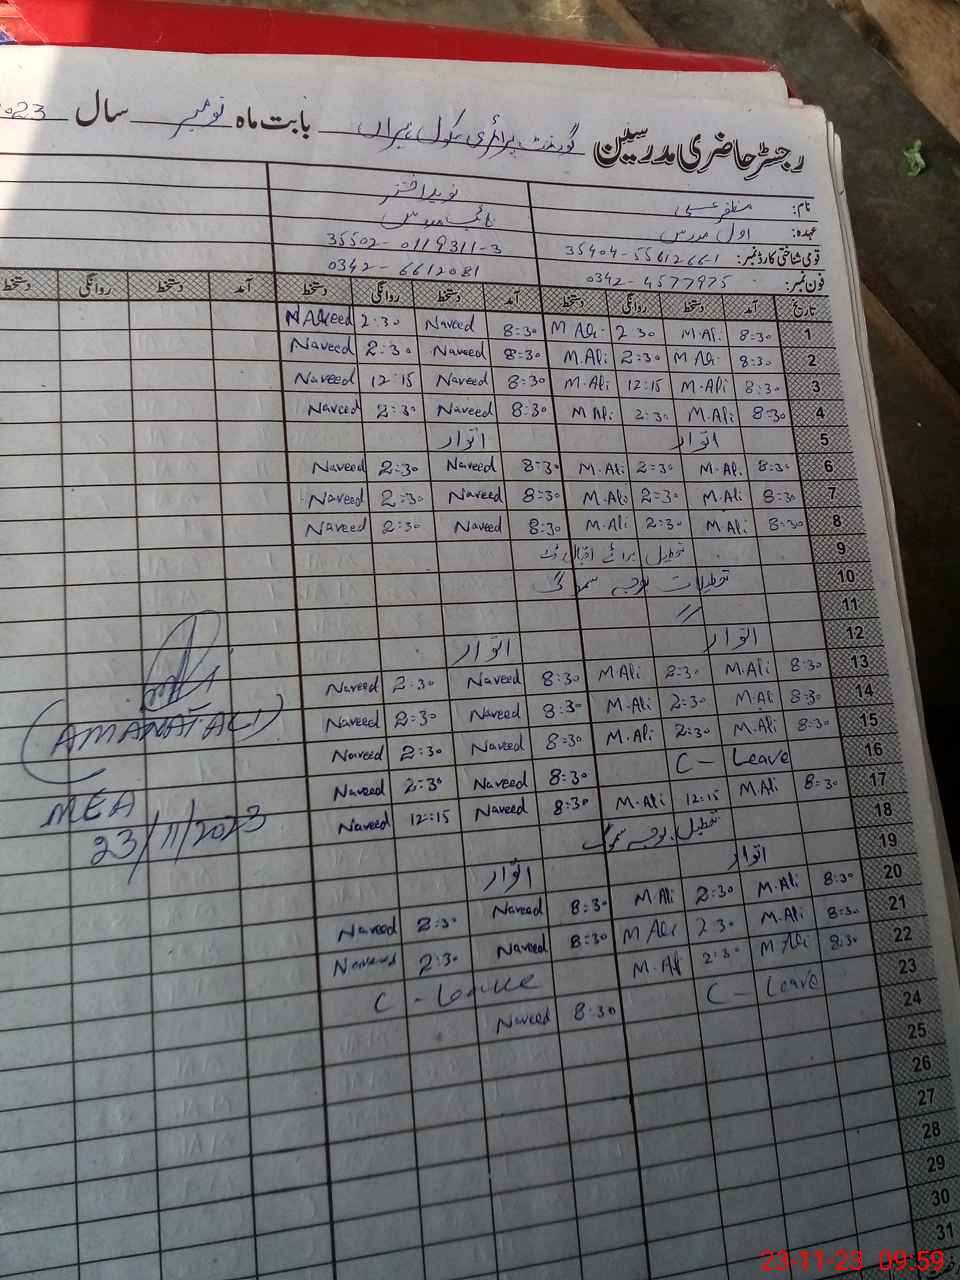 رجسٹر حاضری مدرسین گورنمنٹ پرائمری سکول بابت ماہ نومبر سال 2023
نام: مظفر علی نوید اختر
عہدہ: اول مدرس نائب مدرس
قومی شناختی کارڈ نمبر: 35502-0119311-3
فون نمبر: 0342-4577975 0342-6612081
تاریخ آمد دستخط روانگی دستخط آمد دستخط روانگی دستخط آمد دستخط روانگی دستخط
1 8:30 M.Ali 2:30 M.Ali 8:30 Naveed 2:30 Naveed
2 8:30 M.Ali 2:30 M.Ali 8:30 Naveed 2:30 Naveed
3 8:30 M.Ali 12:15 M.Ali 8:30 Naveed 12:15 Naveed
4 8:30 M.Ali 2:30 M.Ali 8:30 Naveed 2:30 Naveed
5 اتوار اتوار
6 8:30 M.Ali 2:30 M.Ali 8:30 Naveed 2:30 Naveed
7 8:30 M.Ali 2:30 M.Ali 8:30 Naveed 2:30 Naveed
8 8:30 M.Ali 2:30 M.Ali 8:30 Naveed 2:30 Naveed
9 تعطیل برائے اقبال ڈے
10 تعطیلات بوجہ سموگ
11 //
12 اتوار اتوار
13 8:30 M.Ali 2:30 M.Ali 8:30 Naveed 2:30 Naveed
14 8:30 M.Ali 2:30 M.Ali 8:30 Naveed 2:30 Naveed
15 8:30 M.Ali 2:30 M.Ali 8:30 Naveed 2:30 Naveed
16 C- Leave 8:30 Naveed 2:30 Naveed
17 8:30 M.Ali 12:15 M.Ali 8:30 Naveed 12:15 Naveed
18 تعطیل بوجہ سموگ
19 اتوار اتوار
20 8:30 M.Ali 2:30 M.Ali 8:30 Naveed 2:30 Naveed
21 8:30 M.Ali 2:30 M.Ali 8:30 Naveed 2:30 Naveed
22 8:30 M.Ali 2:30 M.Ali C- Leave
23 C- Leave 8:30 Naveed
24
25
26
27
28
29
30
31
(AMANAT ALI)
MEA
23/11/2023
23-11-23 09:59